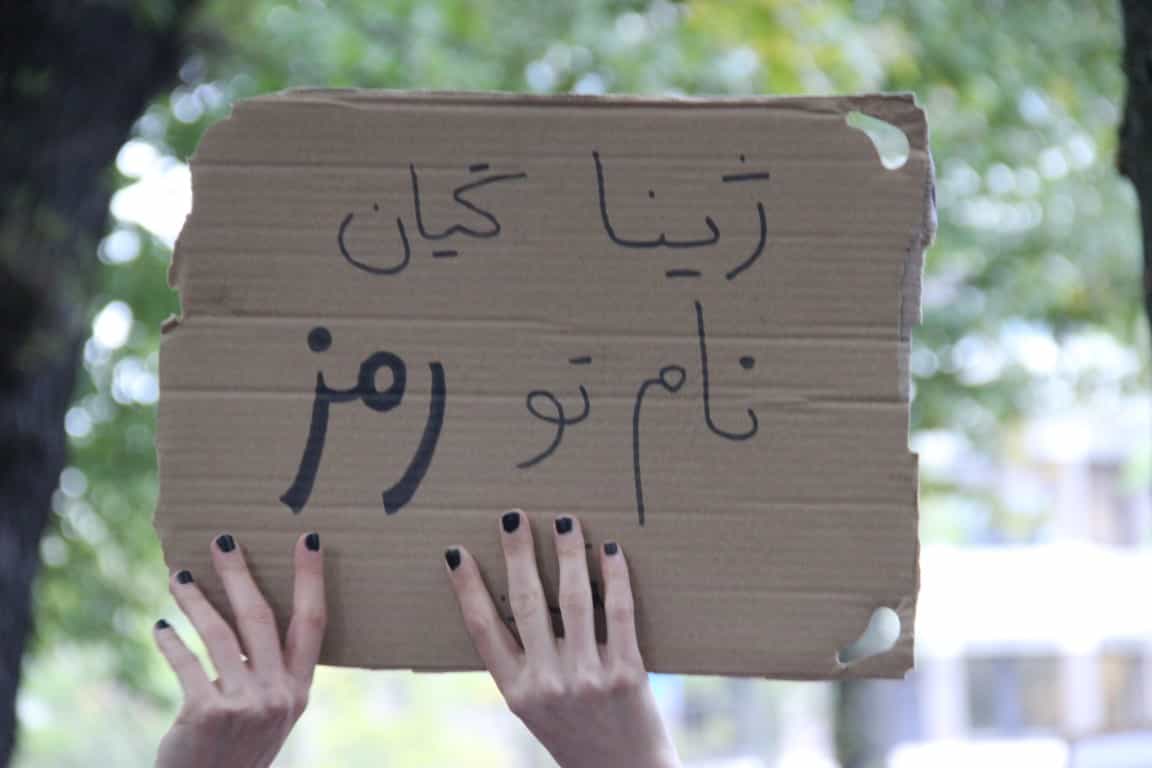 ژینا گیان
نام تو رمز